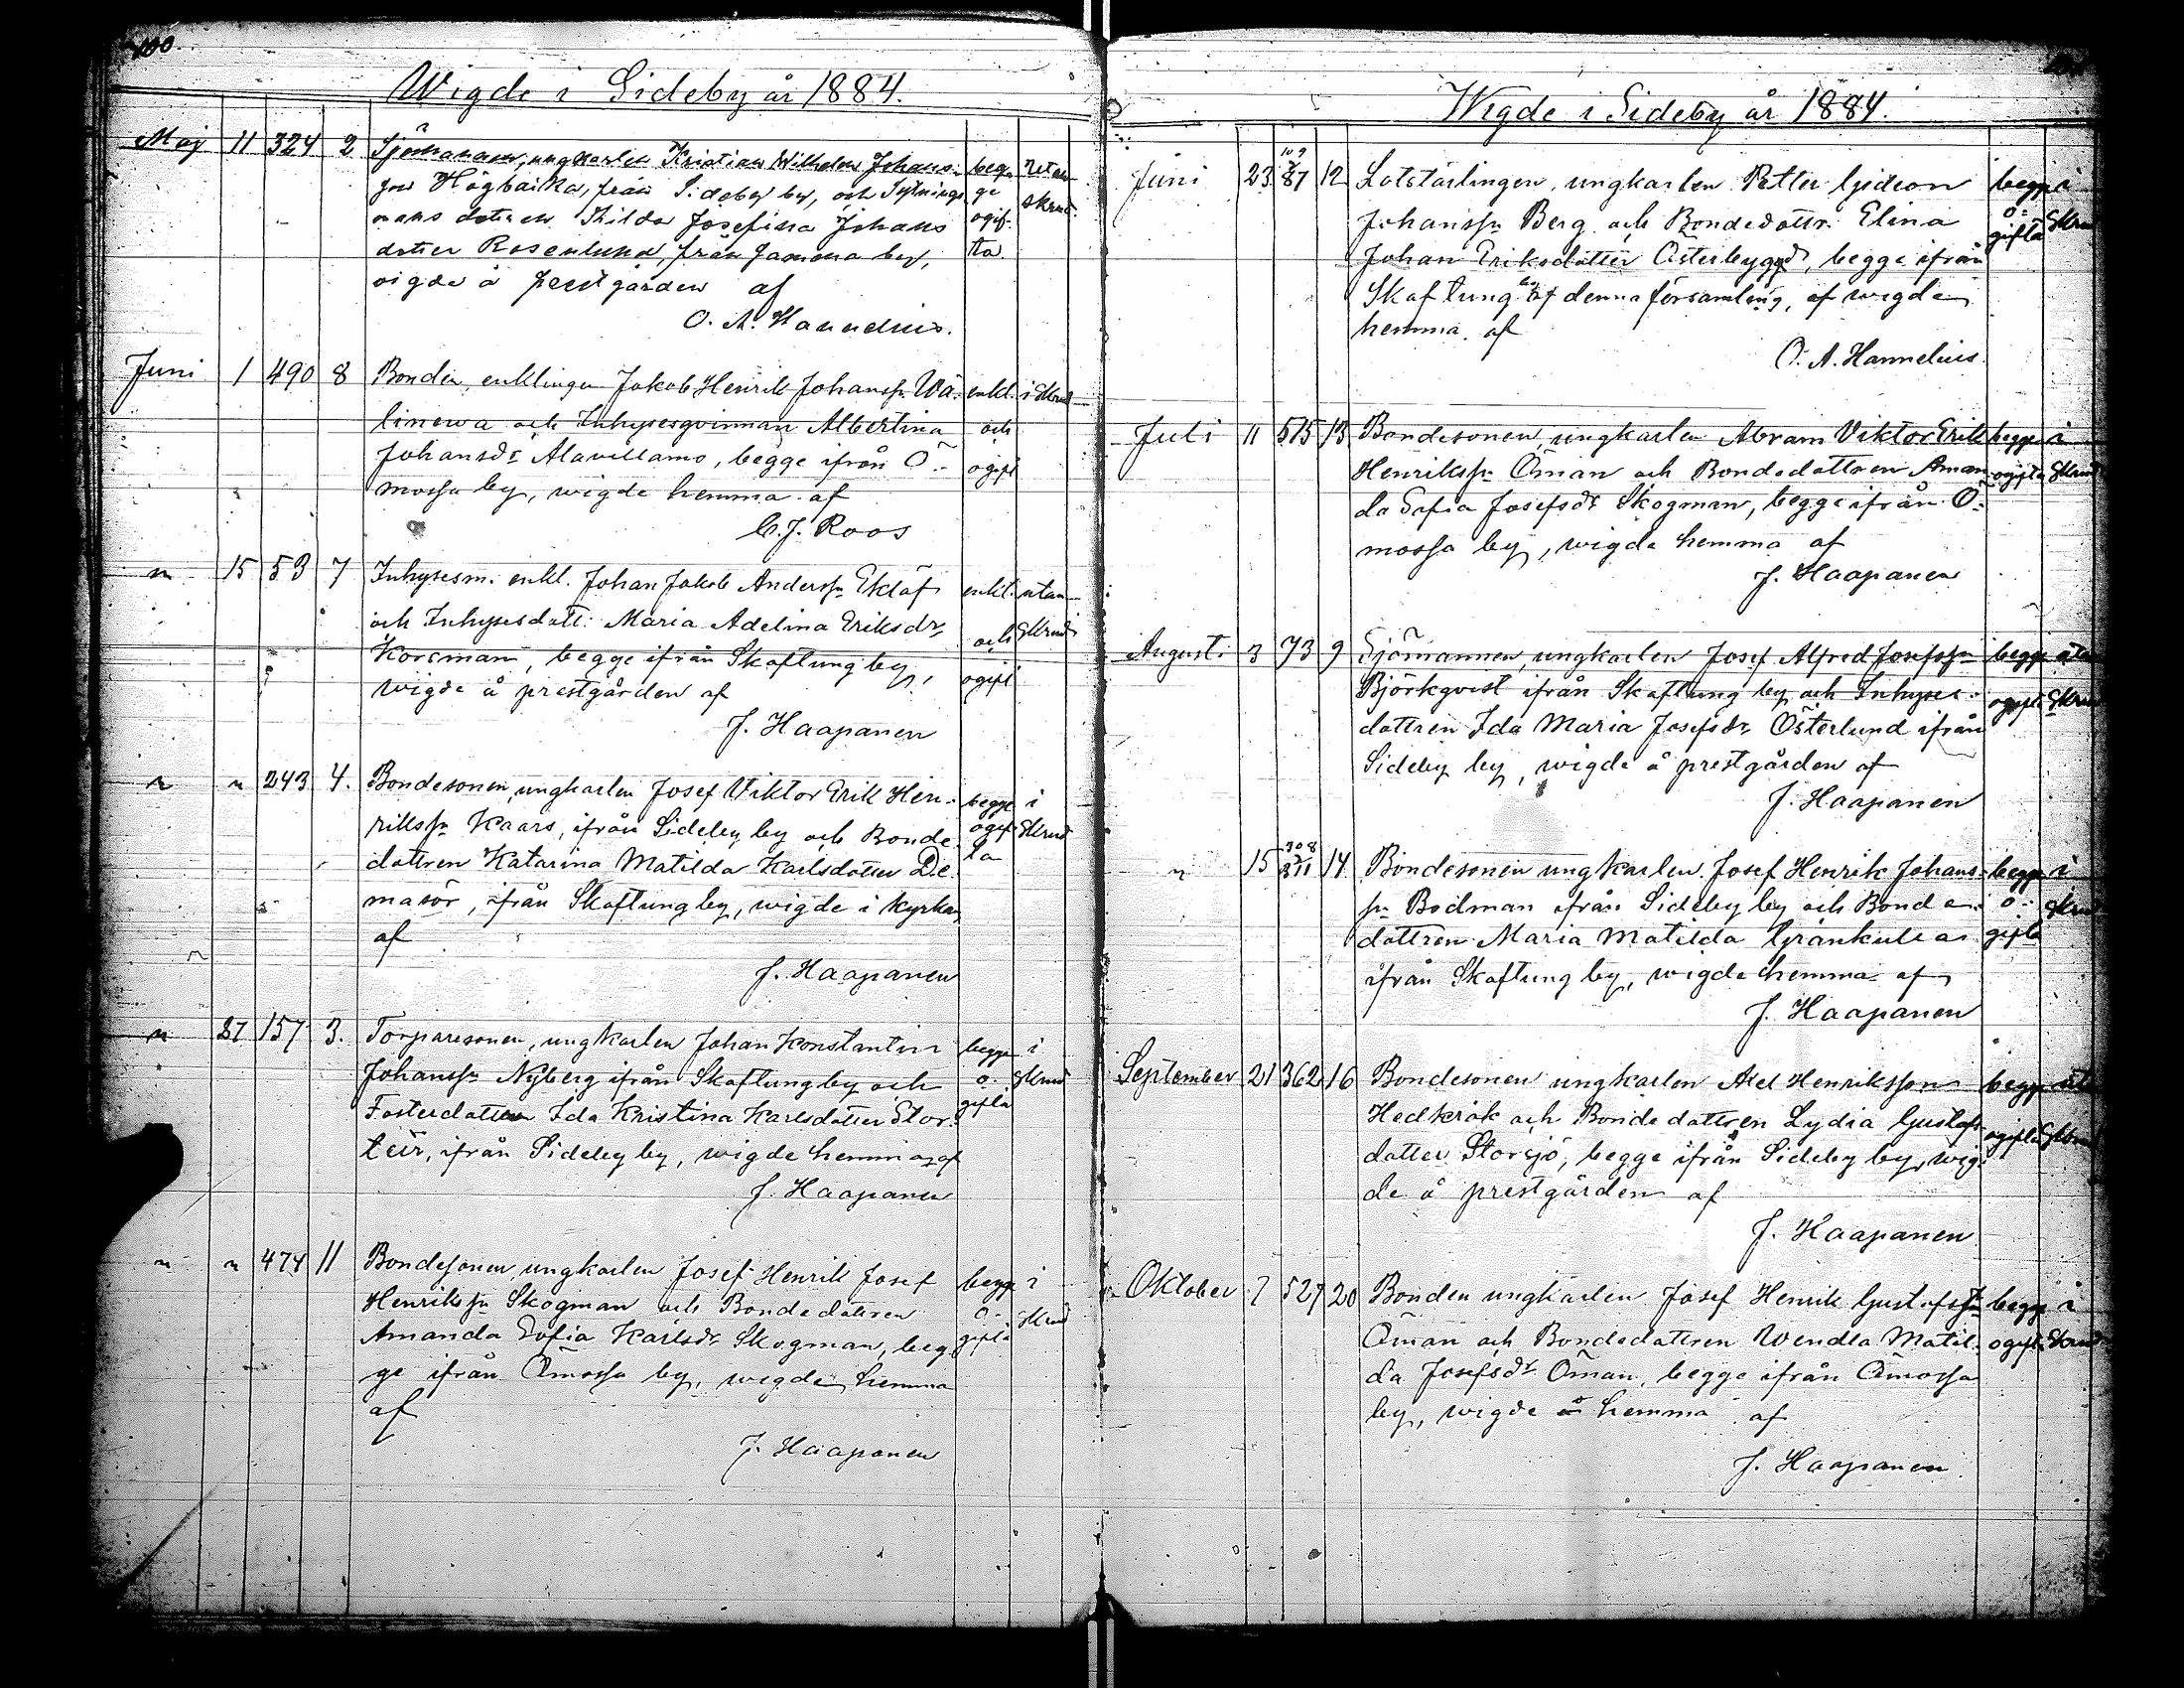 100.
Wigde i Sideby år 1884.
Maj 11 324 2 Sjömannen, ungkarlen Kristian Wilhelm Johans- beg- utan
son Högbacka, från Sideby by, och Sytnings- ge skrud.
mans dottren Hilda Josefina Johans ogif-
dotter Rosenlund, från Jammra by, ta.
vigde å prestgården af
O. A. Hannelius.
Juni 1 490 8 Bonden, enklingen Jakob Henrik Johanss:n Wä- enkl. i skrud
linewa och Inhysesqvinnan Albertina och
Johansd:r Alavillamo, begge ifrån Ö- ogift
mossa by, wigde hemma af
C. J. Roos
" 15 53 7 Inhysesm. enkl. Johan Jakob Anderss:n Eklöf enkl. utan
och Inhysesdott: Maria Adelina Eriksdr, och Skrud
Korsman, begge ifrån Skaftung by, ogift
wigde å prestgården af
J. Haapanen
" " 243 4. Bondesonen, ungkarlen Josef Viktor Erik Hen- begge i
rikss:n Kaars, ifrån Sideby by och Bonde- ogif- Skrud
dottren Katarina Matilda Karlsdotter De- ta
masör, ifrån Skaftung by, wigde i kyrkan
af
J. Haapanen
" 27 157 3. Torparesonen, ungkarlen Johan Konstantin begge i
Johanss:n Nyberg ifrån Skaftung by och o- Skrud
Fosterdottren Ida Kristina Karlsdotter Stor- gifta
teir, ifrån Sideby by, wigde hemma af
J. Haapanen
" " 474 11 Bondesonen, ungkarlen Josef Henrik Josef begge i
Henrikss:n Skogman och Bondedottren o- skrud
Amanda Sofia Karlsdr Skogman, beg- gifta
ge ifrån Ömossa by, wigde hemma
af
J. Haapanen
Wigde i Sideby år 1884.
Juni 23 109 87 12 Lotslärlingen, ungkarlen Petter Gideon begge i
Johanss:n Berg och Bondedottr. Elina o- Skrud
Johan Eriksdotter Österbygd, begge ifrån gifta
Skaftung by af denna församling, af wigde
hemma af
O. A. Hannelius
Juli 11 515 13 Bondesonen, ungkarlen Abram Viktor Erik begge i
Henrikss:n Öman och Bondedottren Aman- ogifta Skrud
da Sofia Josefsdr Skogman, begge ifrån Ö-
mossa by, wigde hemma af
J. Haapanen
Augusti 3 73 9 Sjömannen, ungkarlen Josef Alfred Josefss:n begge utan
Björkqvist ifrån Skaftung by och Inhyses- ogifta Skrud
dottren Ida Maria Josefsdr Österlund ifrån
Sideby by, wigde å prestgården af
J. Haapanen
" 15 308 14 Bondesonen ungkarlen Josef Henrik Johans- begge i
s:n Bodman ifrån Sideby by och Bonde- o- skrud
dottren Maria Matilda Grankulla gifta
ifrån Skaftung by, wigde hemma af
J. Haapanen
September 21 362 16 Bondesonen ungkarlen Axel Henriksson begge utan
Hedkrok och Bondedottren Lydia Gustafs- ogifta Skrud
dotter Storsjö, begge ifrån Sideby by, wig-
de å prestgården af
J. Haapanen
Oktober 7 527 20 Bonden ungkarlen Josef Henrik Gustafss:n begge i
Öman och Bondedottren Wendla Matil- ogifta Skrud
da Josefsdr Öman, begge ifrån Ömossa
by, wigde å hemma af
J. Haapanen